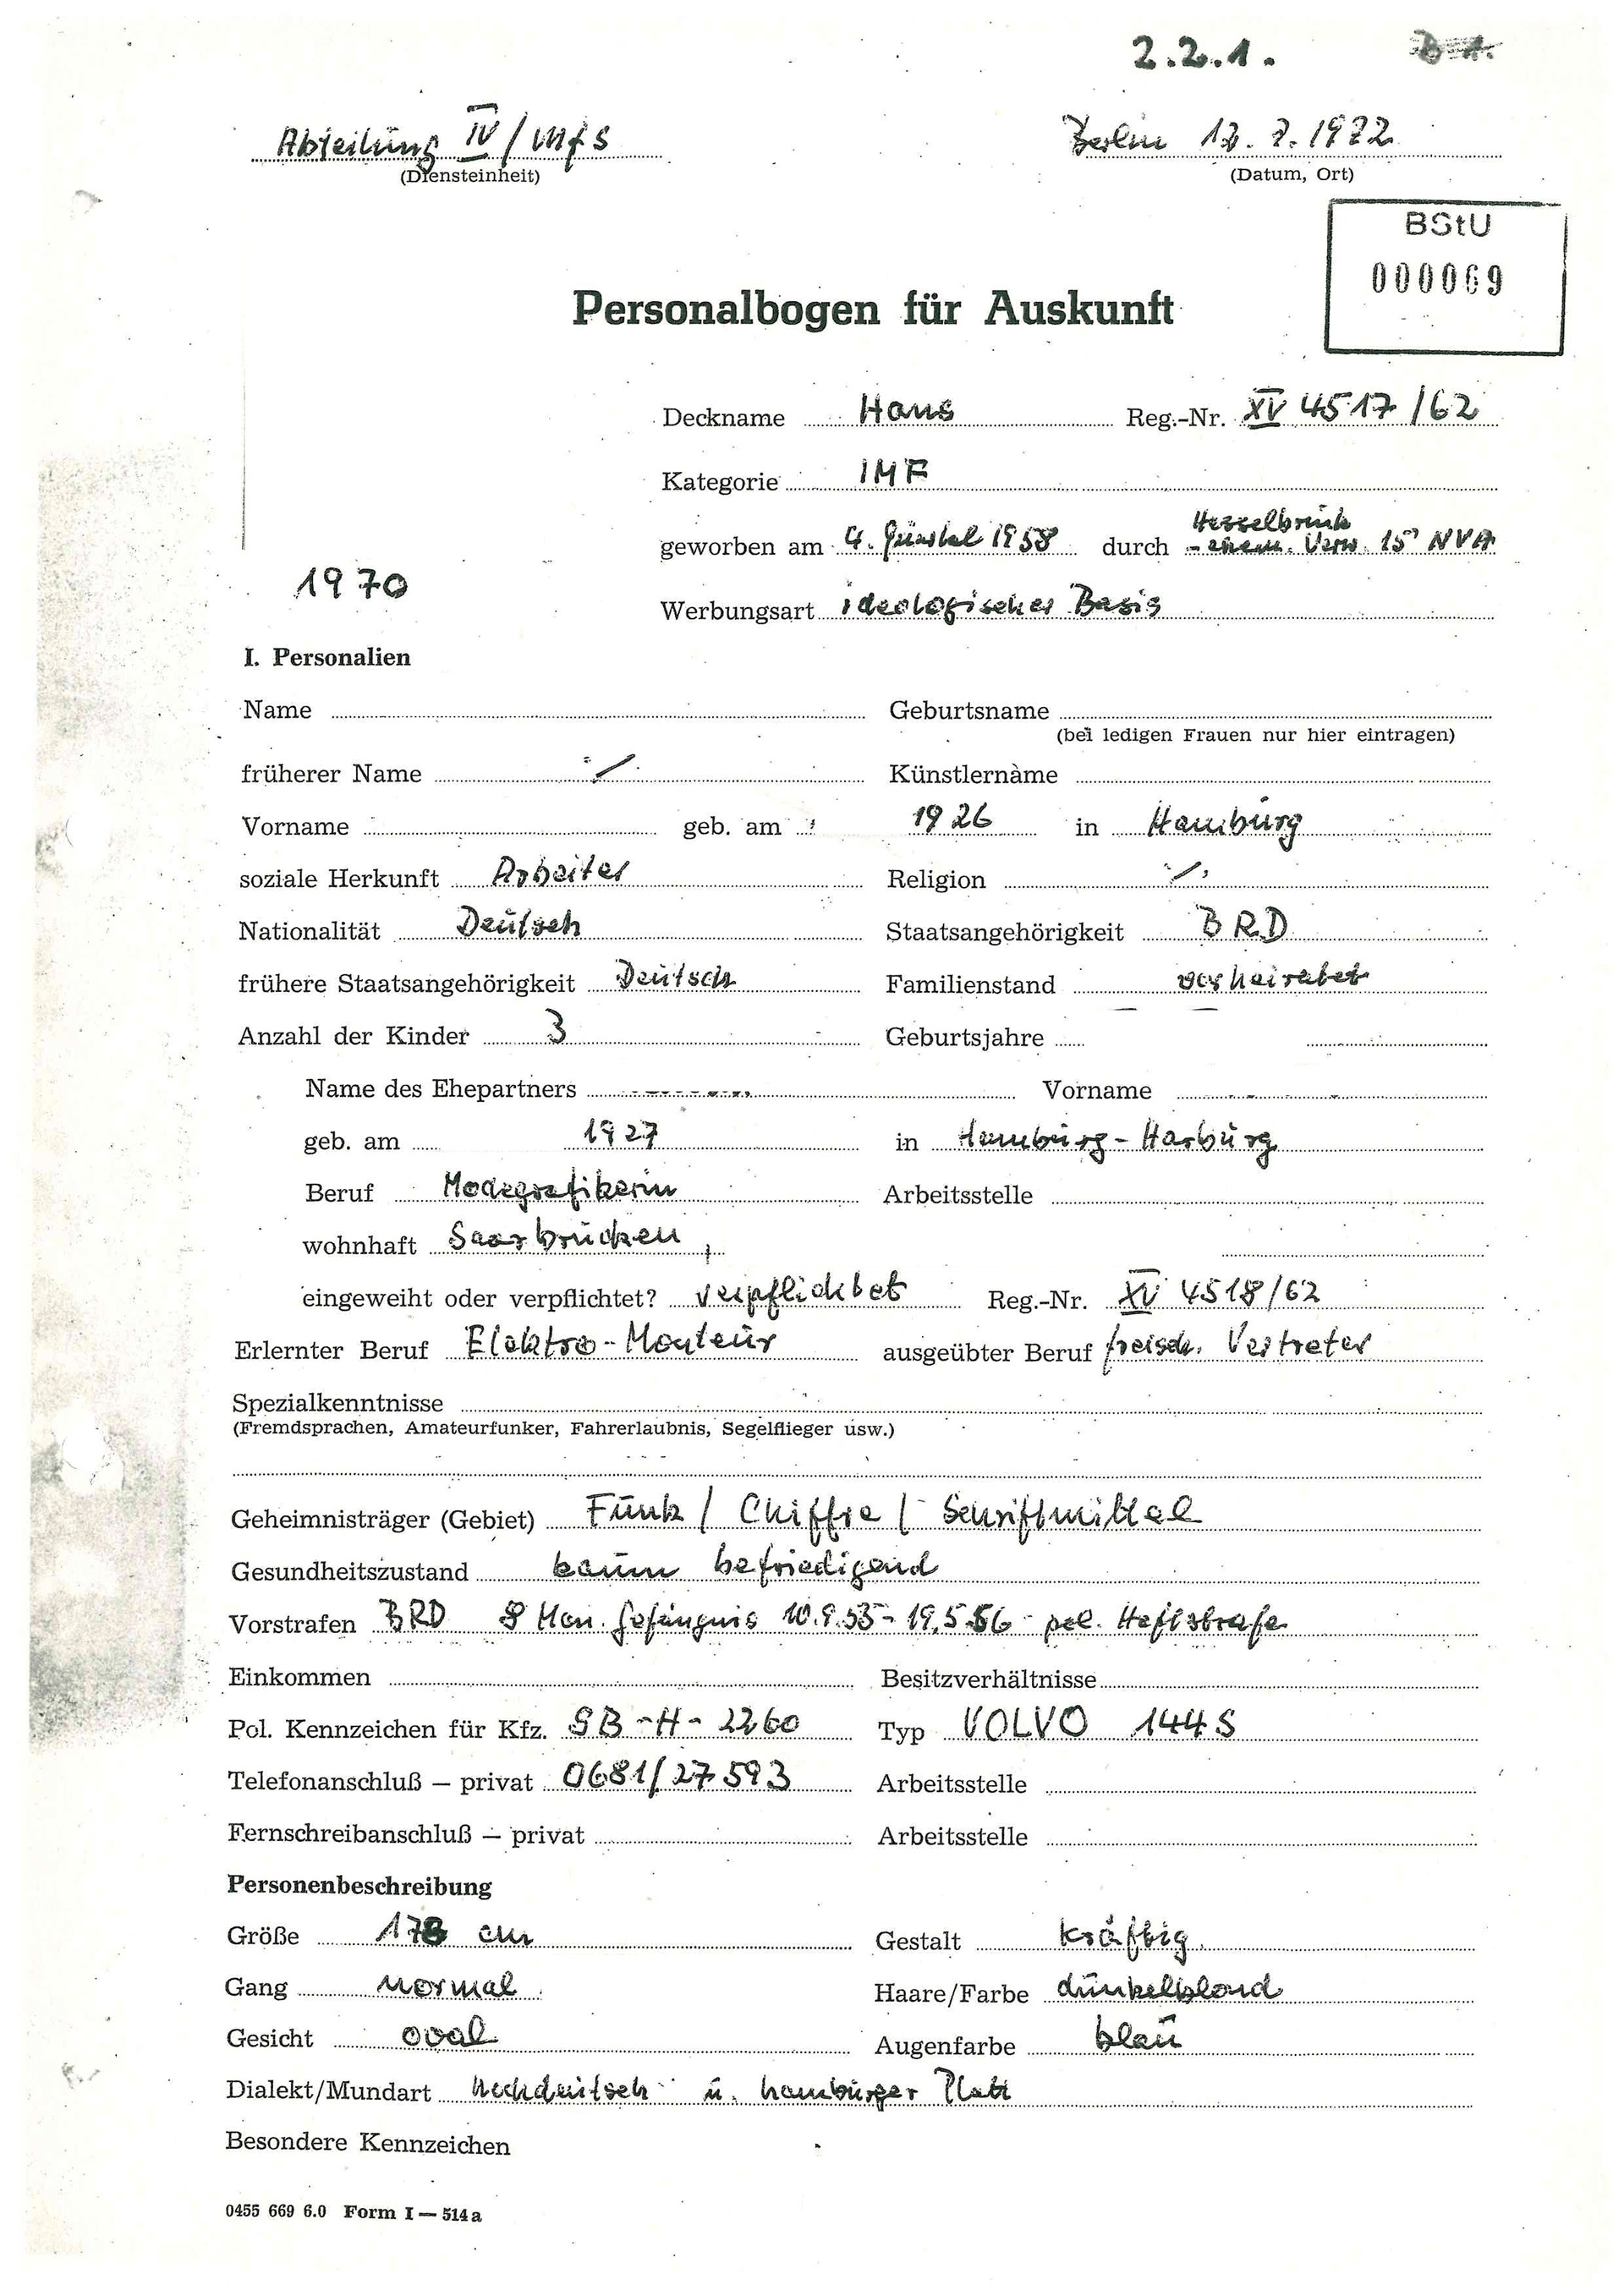 2.2.1.
Abteilung IV/MfS Berlin
(Diensteinheit) (Datum, Ort)
BStU
000069
Personalbogen für Auskunft
Deckname Hans Reg.-Nr. XV 4517/62
Kategorie IMF
Hesselbrink
geworben am 4. Quartal 1958 durch - ehem. Verw. 15 NVA
1970
Werbungsart ideologischer Basis
I. Personalien
Name Geburtsname
(bei ledigen Frauen nur hier eintragen)
früherer Name ./. Künstlername
Vorname geb. am 1926 in Hamburg
soziale Herkunft Arbeiter Religion ./.
Nationalität Deutsch Staatsangehörigkeit BRD
frühere Staatsangehörigkeit Deutsch Familienstand verheiratet
Anzahl der Kinder 3 Geburtsjahre
Name des Ehepartners Vorname
geb. am 1927 in Hamburg-Harburg
Beruf Modegrafikerin Arbeitsstelle
wohnhaft Saarbrücken,
eingeweiht oder verpflichtet? verpflichtet Reg.-Nr. XV 4518/62
Erlernter Beruf Elektro-Monteur ausgeübter Beruf freisch. Vertreter
Spezialkenntnisse
(Fremdsprachen, Amateurfunker, Fahrerlaubnis, Segelflieger usw.)
Geheimnisträger (Gebiet) Funk / Chiffre / Schriftmittel
Gesundheitszustand kaum befriedigend
Vorstrafen BRD 8 Mon. Gefängnis 10.9.55 - 19.5.56 - pol. Haftstrafe
Einkommen Besitzverhältnisse
Pol. Kennzeichen für Kfz. SB-H-2260 Typ VOLVO 144 S
Telefonanschluß — privat 0681/27593 Arbeitsstelle
Fernschreibanschluß — privat Arbeitsstelle
Personenbeschreibung
Größe 178 cm Gestalt kräftig
Gang normal Haare/Farbe dunkelblond
Gesicht oval Augenfarbe blau
Dialekt/Mundart hochdeutsch u. hamburger Platt
Besondere Kennzeichen
0455 669 6.0 Form I — 514 a